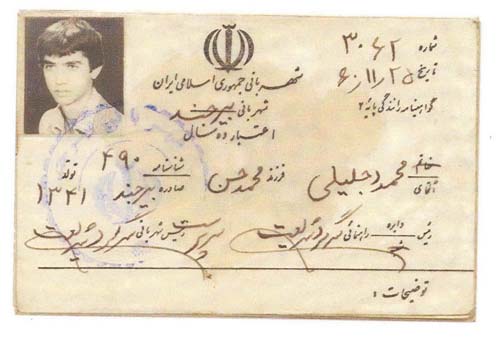 شماره ۳۰۶۲
تاریخ ۶۰/۱۱/۲۵
شهربانی جمهوری اسلامی ایران
گواهینامه رانندگی پایه ۲
شهربانی بیرجند
اعتبار ده سال
خانم آقای محمود جلیلی فرزند محمدحسن شناسنامه ۴۹۰ صادره بیرجند تولد ۱۳۴۱
رئیس دایره راهنمائی سرگرد شریعت سرپرست رئیس شهربانی سرگرد شریعت
توضیحات :